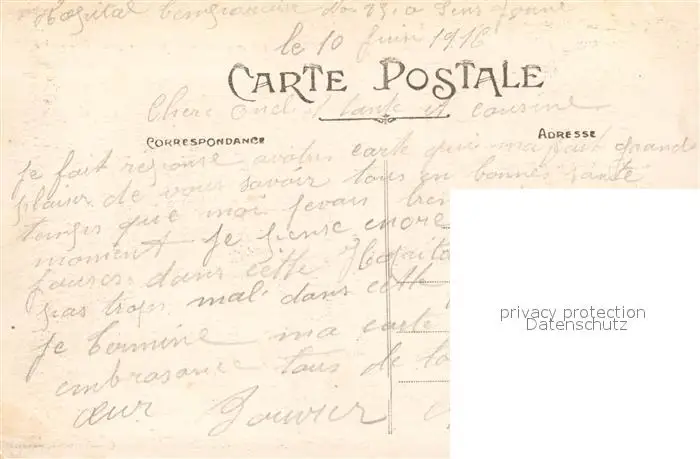 Hopital Temporaire No 23 a Sens Yonne
le 10 Juin 1916
CARTE POSTALE
Chere Oncle tante et cousine
CORRESPONDANCE
ADRESSE
je fait reponse avotre carte qui ma fait grand
plaisir de vous savoir tous en bonnes santé
temps que moi jevais bien
moment je pense encore
jours dans cette Hopita
pas trop mal dans cette
je termine ma carte
embrasance tous de to
cœur Bouvier
privacy protection
Datenschutz